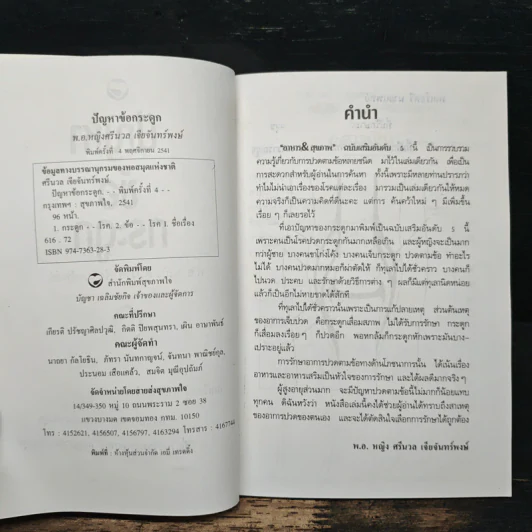 ปัญหาข้อกระดูก
พ.อ.หญิงศรีนวล เจียจันทร์พงษ์
พิมพ์ครั้งที่ 4 พฤศจิกายน 2541
ข้อมูลทางบรรณานุกรมของหอสมุดแห่งชาติ
ศรีนวล เจียจันทร์พงษ์.
ปัญหาข้อกระดูก. - - พิมพ์ครั้งที่ 4 - -
กรุงเทพฯ : สุขภาพใจ, 2541
96 หน้า.
1. กระดูก - - โรค. 2. ข้อ - - โรค I. ชื่อเรื่อง
616 . 72
ISBN 974-7363-28-3
จัดพิมพ์โดย
สำนักพิมพ์สุขภาพใจ
บัญชา เฉลิมชัยกิจ เจ้าของและผู้จัดการ
คณะที่ปรึกษา
เกียรติ ปรัชญาศิลปวุฒิ, กิตติ ปิยพสุนทรา, เผิน อานาพันธ์
คณะผู้จัดทำ
นาถยา กัลโยธิน, ภัทรา นันทกาญจน์, จันทนา พาณิชย์กุล,
ประนอม เสือแคล้ว, สมจิต มุณีอุปถัมภ์
จัดจำหน่ายโดยสายส่งสุขภาพใจ
14/349-350 หมู่ 10 ถนนพระราม 2 ซอย 38
แขวงบางมด เขตจอมทอง กทม. 10150
โทร : 4152621, 4156507, 4156797, 4163294 โทรสาร :
พิมพ์ที่ : ห้างหุ้นส่วนจำกัด เอมี่ เทรดดิ้ง
คำนำ
"อาหาร& สุขภาพ" ฉบับเสริมอันดับ 5 นี้ เป็นการรวบรวม
ความรู้เกี่ยวกับการปวดตามข้อหลายชนิด มาไว้ในเล่มเดียวกัน เพื่อเป็น
การสะดวกสำหรับผู้อ่านในการค้นหา ทั้งนี้เพราะมีหลายท่านปรารภว่า
ทำไมไม่นำเอาเรื่องของโรคแต่ละเรื่อง มารวมเป็นเล่มเดียวกันให้หมด
ความจริงก็เป็นความคิดที่ดีนะคะ แต่การ ค้นคว้าใหม่ ๆ มีเพิ่มขึ้น
เรื่อย ๆ ก็เลยรอไว้
ที่เอาปัญหาของกระดูกมาพิมพ์เป็นฉบับเสริมอันดับ 5 นี้
เพราะคนเป็นโรคปวดกระดูกกันมากเหลือเกิน และผู้หญิงจะเป็นมาก
กว่าผู้ชาย บางคนขาโก่งโค้ง บางคนเจ็บกระดูก ปวดตามข้อ ทำอะไร
ไม่ได้ บางคนปวดมากหมอก็ผ่าตัดให้ ก็ทุเลาไปได้ชั่วคราว บางคนก็
ไปนวด ประคบ และรักษาด้วยวิธีการต่าง ๆ ผลก็มีแต่ทุเลานิดหน่อย
แล้วก็เป็นอีกไม่หายขาดได้สักที
ที่ทุเลาไปได้ชั่วคราวนั้นเพราะเป็นการแก้ปลายเหตุ ส่วนต้นเหตุ
ของอาการเจ็บปวด คือกระดูกเสื่อมสภาพ ไม่ได้รับการรักษา กระดูก
ก็เสื่อมลงเรื่อยๆ ก็ปวดอีก พอหกล้มก็กระดูกหักเพราะมันบาง-
เปราะอยู่แล้ว
การรักษาอาการปวดตามข้อทางด้านโภชนาการนั้น ได้เน้นเรื่อง
อาหารและอาหารเสริมเป็นหัวใจของการรักษา และได้ผลดีมากจริงๆ
ผู้สูงอายุส่วนมาก จะมีปัญหาปวดตามข้อนี้ไม่มากก็น้อยแทบ
ทุกคน ดิฉันหวังว่า หนังสือเล่มนี้คงได้ช่วยผู้อ่านได้ทราบถึงสาเหตุ
ของอาการปวดของตนเอง และจะได้ตัดสินใจเลือกการรักษาได้ถูกต้อง
พ.อ. หญิง ศรีนวล เจียจันทร์พงษ์